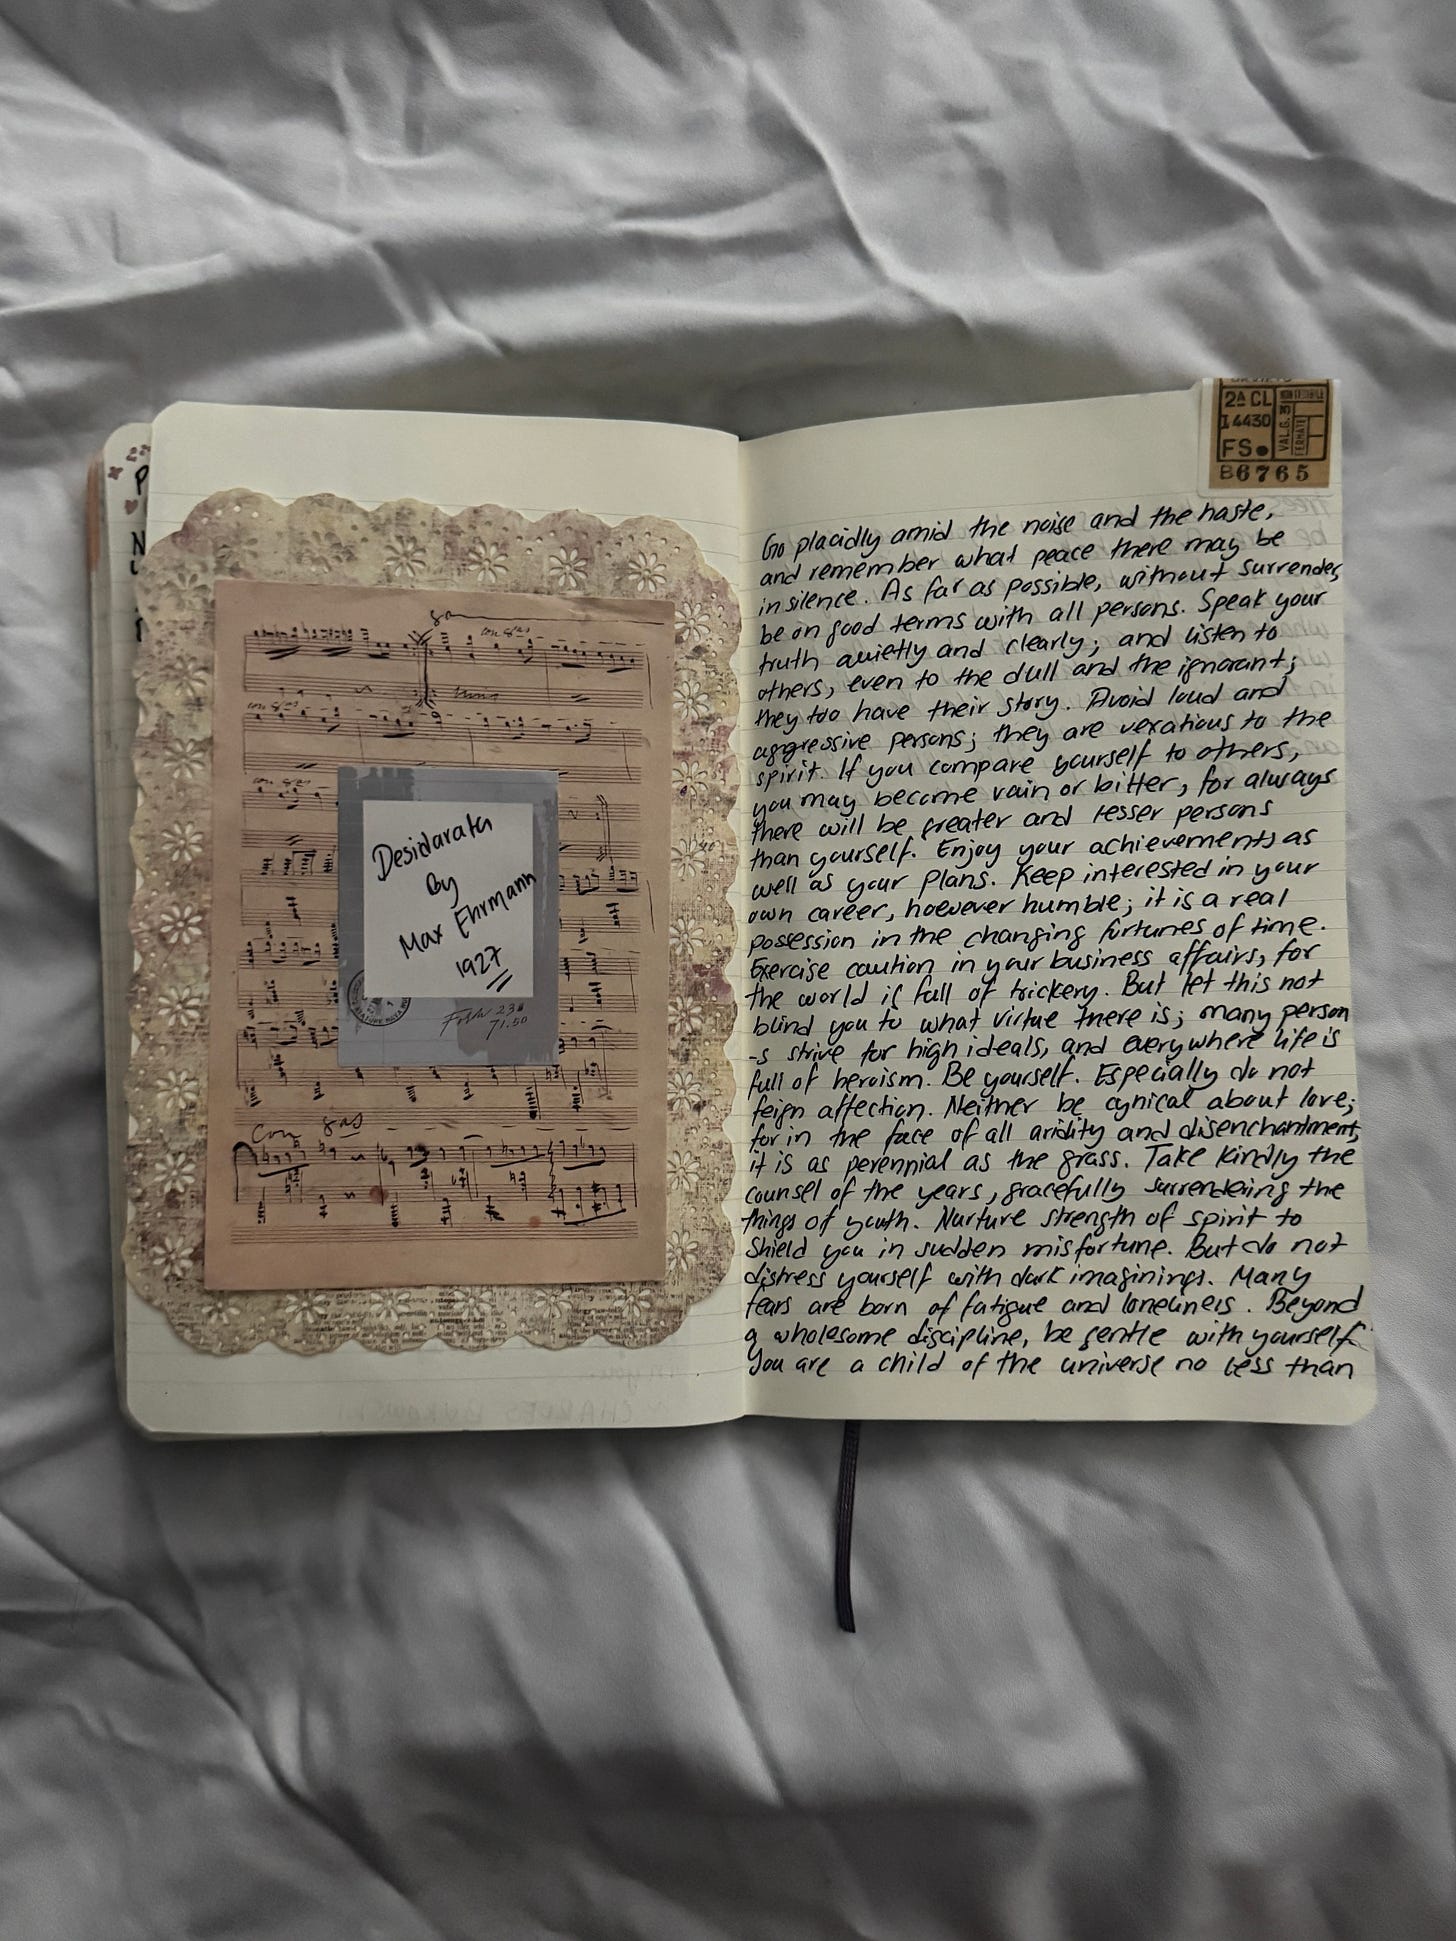 Desidarata
By
Max Ehrmann
1927
2A CL
14430
VAL.G.
FS.
B6765
Go placidly amid the noise and the haste,
and remember what peace there may be
in silence. As far as possible, without surrender,
be on good terms with all persons. Speak your
truth quietly and clearly; and listen to
others, even to the dull and the ignorant;
they too have their story. Avoid loud and
aggressive persons; they are vexatious to the
spirit. If you compare yourself to others,
you may become vain or bitter, for always
there will be greater and lesser persons
than yourself. Enjoy your achievements as
well as your plans. Keep interested in your
own career, however humble; it is a real
possession in the changing fortunes of time.
Exercise caution in your business affairs, for
the world is full of trickery. But let this not
blind you to what virtue there is; many person
-s strive for high ideals, and everywhere life is
full of heroism. Be yourself. Especially do not
feign affection. Neither be cynical about love;
for in the face of all aridity and disenchantment,
it is as perennial as the grass. Take kindly the
counsel of the years, gracefully surrendering the
things of youth. Nurture strength of spirit to
shield you in sudden misfortune. But do not
distress yourself with dark imaginings. Many
fears are born of fatigue and loneliness. Beyond
a wholesome discipline, be gentle with yourself.
You are a child of the universe no less than